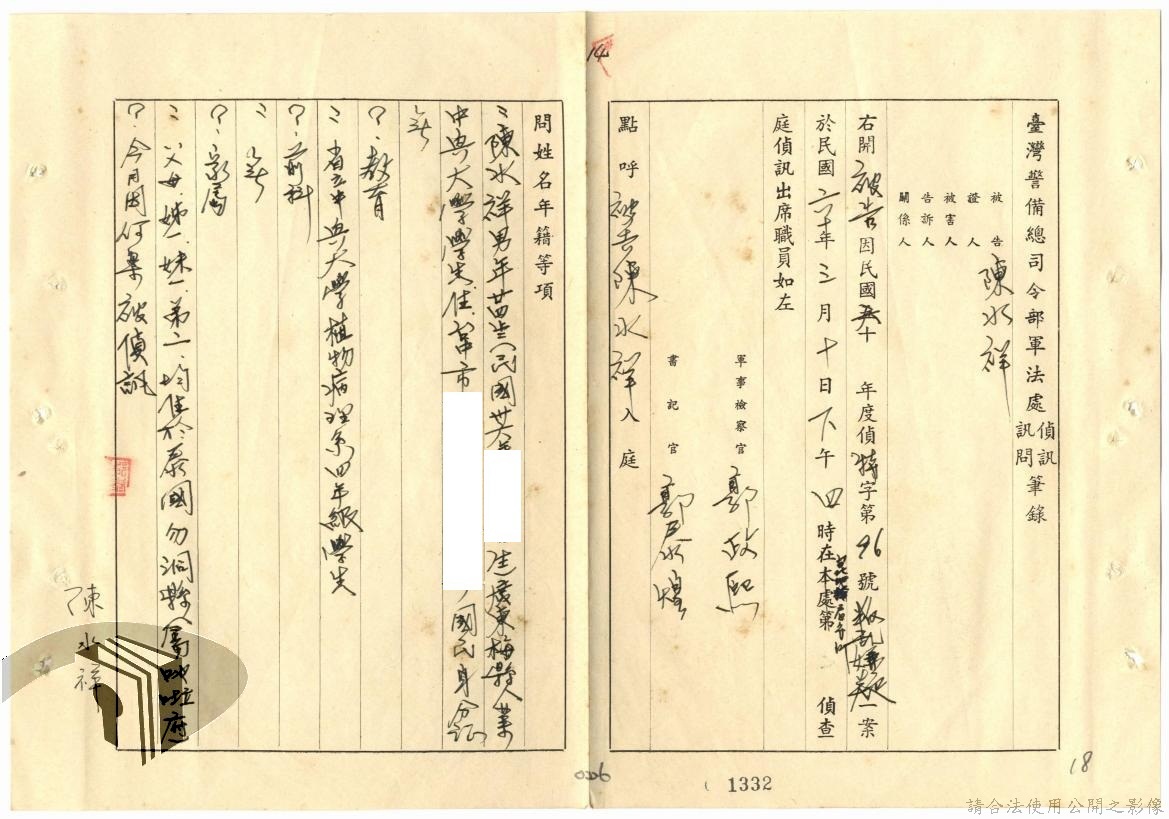 臺灣警備總司令部軍法處偵訊訊問筆錄
被告 陳水祥
證人
被害人
告訴人
關係人
右開被告因民國六十年度偵特字第96號叛亂嫌疑一案
於民國六十年三月十日下午四時在本處第 偵查
庭偵訊出席職員如左
軍事檢察官 郭政熙
書記官
點呼被告陳水祥入庭
問姓名年籍等項
陳水祥男年廿四歲民國廿六年 生廣東梅縣人業
中興大學學生住 市 國民身分証
無
?、教育
省立中興大學植物病理系四年級學生
?、前科
無
?、家屬
父母、姊一、妹一、弟二、均住於泰國勿洞縣屬 府
?、今日因何案被偵訊
陳水祥
14
0206
1332
18
請合法使用公開之影像